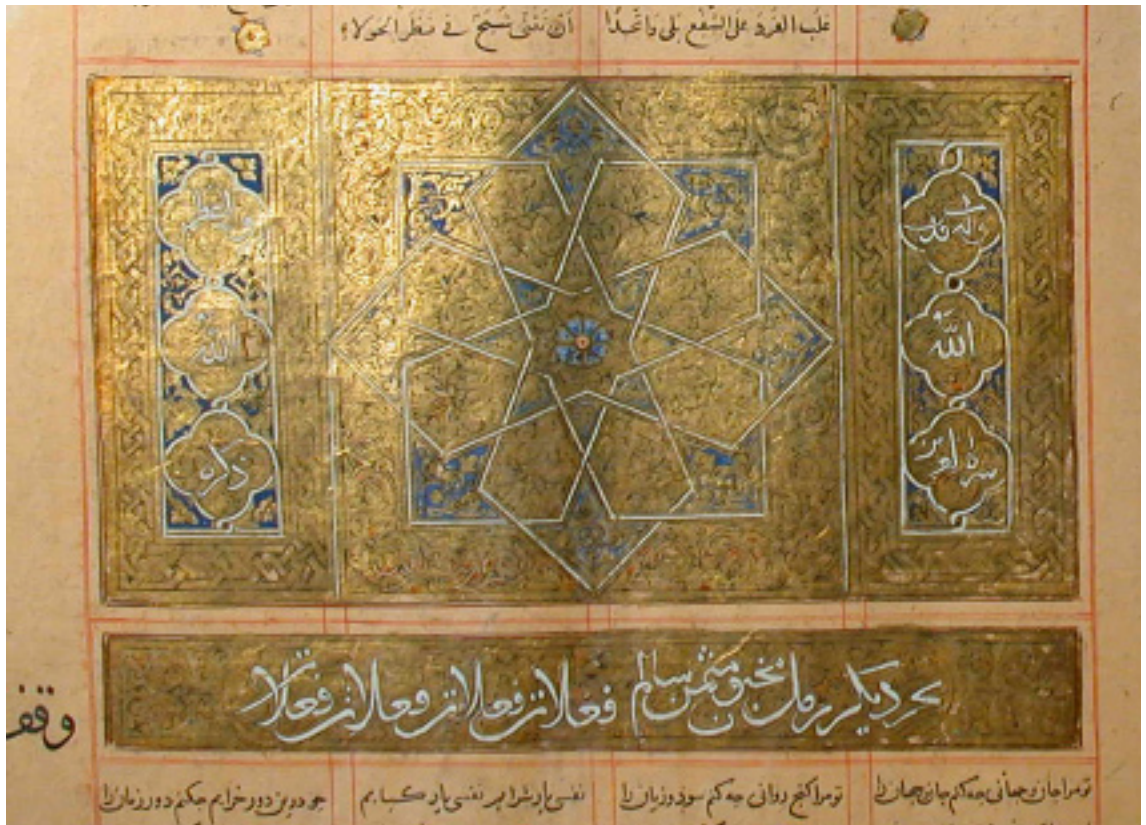 غلب الفرد علی الشفع بلی واتحدا ان تثنی شبح فی منظر الحولاء
وله قدس
الله
سره العزیز
الله
ذکره
بحر دیکر رمل مخبون مثمن سالم فعلاتن فعلاتن فعلاتن فعلاتن
وقف
تو مرا جان و جهانی چه کنم جان و جهان را تو مرا کنج روانی چه کنم سود و زیان را نفسی یار شرابم نفسی یار کبابم جو درین دور خرابم چکنم دور زمان را